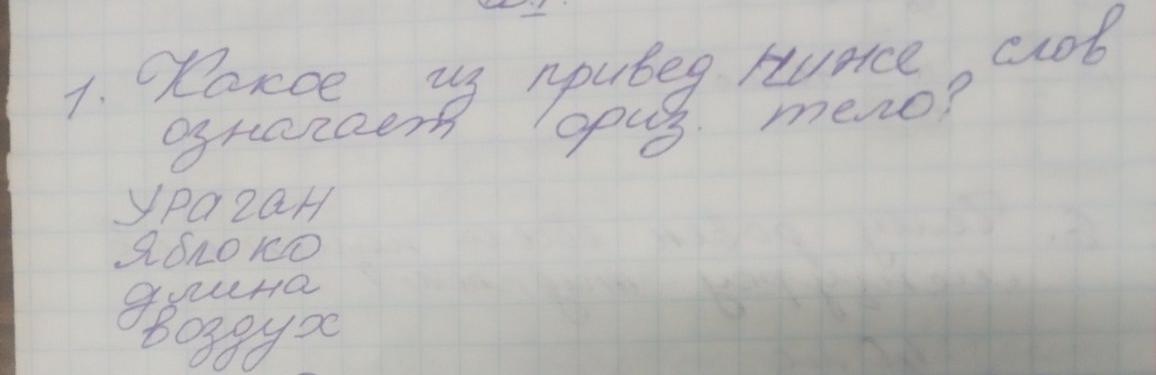 1. Какое из привед ниже слов
означает физ. тело?
Ураган
Яблоко
длина
воздух